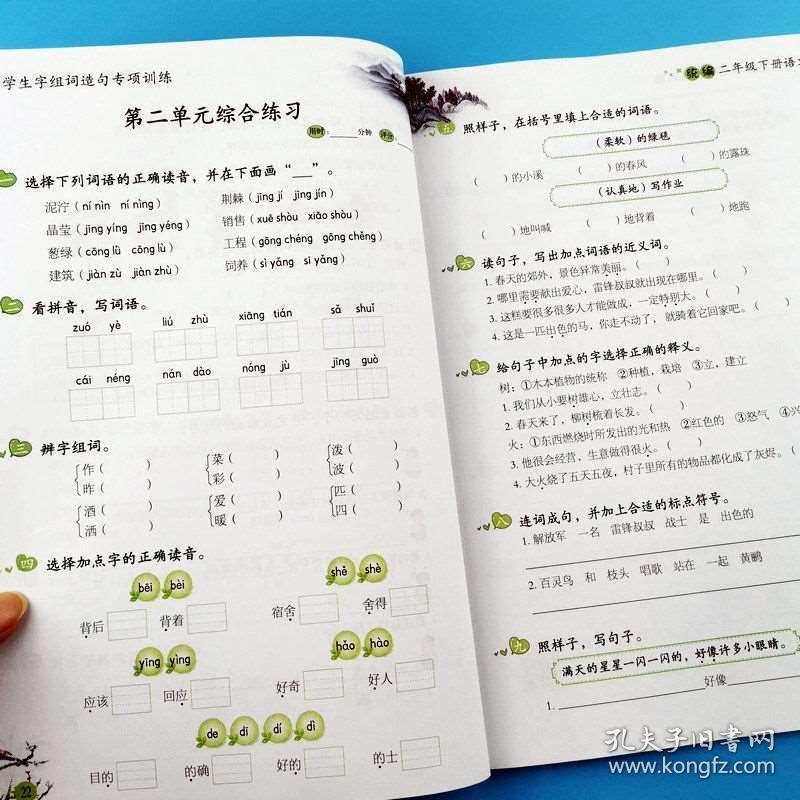 学生字组词造句专项训练
第二单元综合练习
限时：______分钟 评价：
一 选择下列词语的正确读音，并在下面画“__”。
泥泞（ní nìn ní nìng） 荆棘（jīng jí jīng jín）
晶莹（jīng yíng jīng yéng） 销售（xuē shòu xiāo shòu）
葱绿（cōng lǜ cōng lù） 工程（gōng chéng gōng chěng）
建筑（jiàn zú jiàn zhù） 饲养（sì yǎng sì yáng）
二 看拼音，写词语。
zuó yè liú zhù xiāng tián sǎ shuǐ
cái néng nán dào nóng jù jīng guò
三 辨字组词。
作（ ） 菜（ ） 泼（ ）
昨（ ） 彩（ ） 波（ ）
酒（ ） 爱（ ） 匹（ ）
洒（ ） 暖（ ） 四（ ）
四 选择加点字的正确读音。
bēi bèi shě shè
背后 背着 宿舍 舍得
yīng yìng hǎo hào
应该 回应 好奇 好人
de dī dí dì
目的 的确 好的 的士
22
统编 二年级下册语文
五 照样子，在括号里填上合适的词语。
（柔软）的绒毯
（ ）的小溪 （ ）的春风 （ ）的露珠
（认真地）写作业
（ ）地叫喊 （ ）地背着 （ ）地跑
六 读句子，写出加点词语的近义词。
1. 春天的郊外，景色异常美丽。（ ）
2. 哪里需要献出爱心，雷锋叔叔就出现在哪里。（ ）
3. 这糕要很多很多人才能做成，一定特别大。（ ）
4. 这是一匹出色的马，你走不动了，就骑着它回家吧。（ ）
七 给句子中加点的字选择正确的释义。
树：①木本植物的统称 ②种植，栽培 ③立，建立
1. 我们从小要树雄心，立壮志。（ ）
2. 春天来了，柳树梳着长发。（ ）
火：①东西燃烧时所发出的光和热 ②红色的 ③怒气 ④兴
3. 他很会经营，生意做得很火。（ ）
4. 大火烧了五天五夜，村子里所有的物品都化成了灰烬。（
八 连词成句，并加上合适的标点符号。
1. 解放军 一名 雷锋叔叔 战士 是 出色的
2. 百灵鸟 和 枝头 唱歌 站在 一起 黄鹂
九 照样子，写句子。
满天的星星一闪一闪的，好像许多小眼睛。
1. ______________好像
孔夫子旧书网
www.kongfz.com